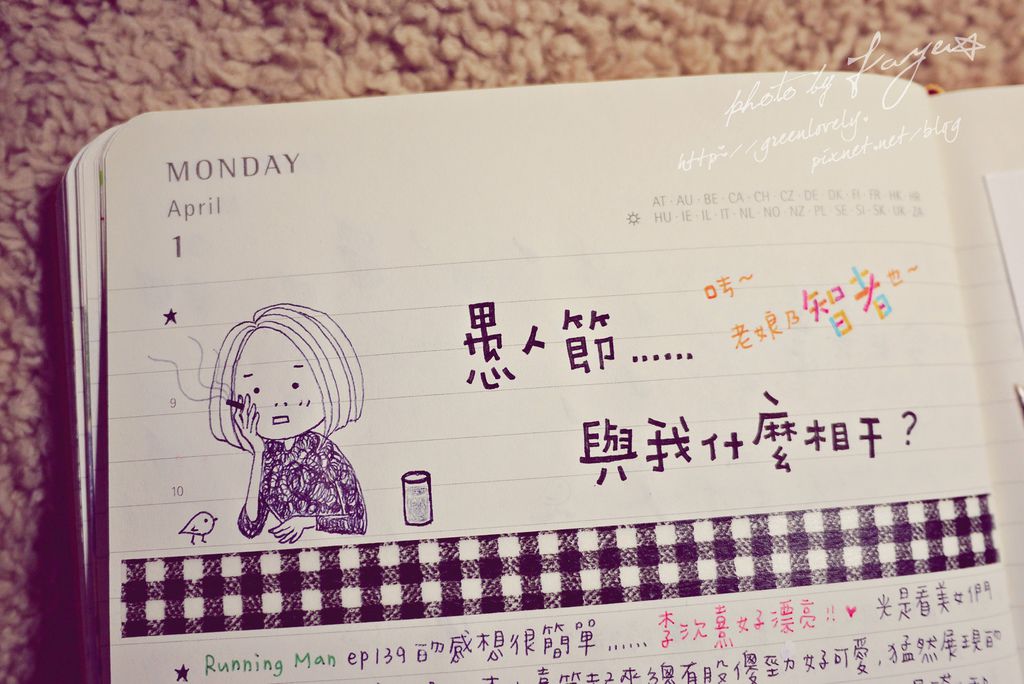 photo by Faye☆
http://greenlovely.
pixnet.net/blog
MONDAY
April
1
AT·AU·BE·CA·CH·CZ·DE·DK·FI·FR·HK·HR
HU·IE·IL·IT·NL·NO·NZ·PL·SE·SI·SK·UK·ZA
9
10
愚人節......
唔~
老娘乃智者也~
與我什麼相干?
★ Running Man ep139 的感想很簡單...... 李沇熹好漂亮!! ♥ 光是看美女們
起來總有股傻勁好可愛,猛然展現的